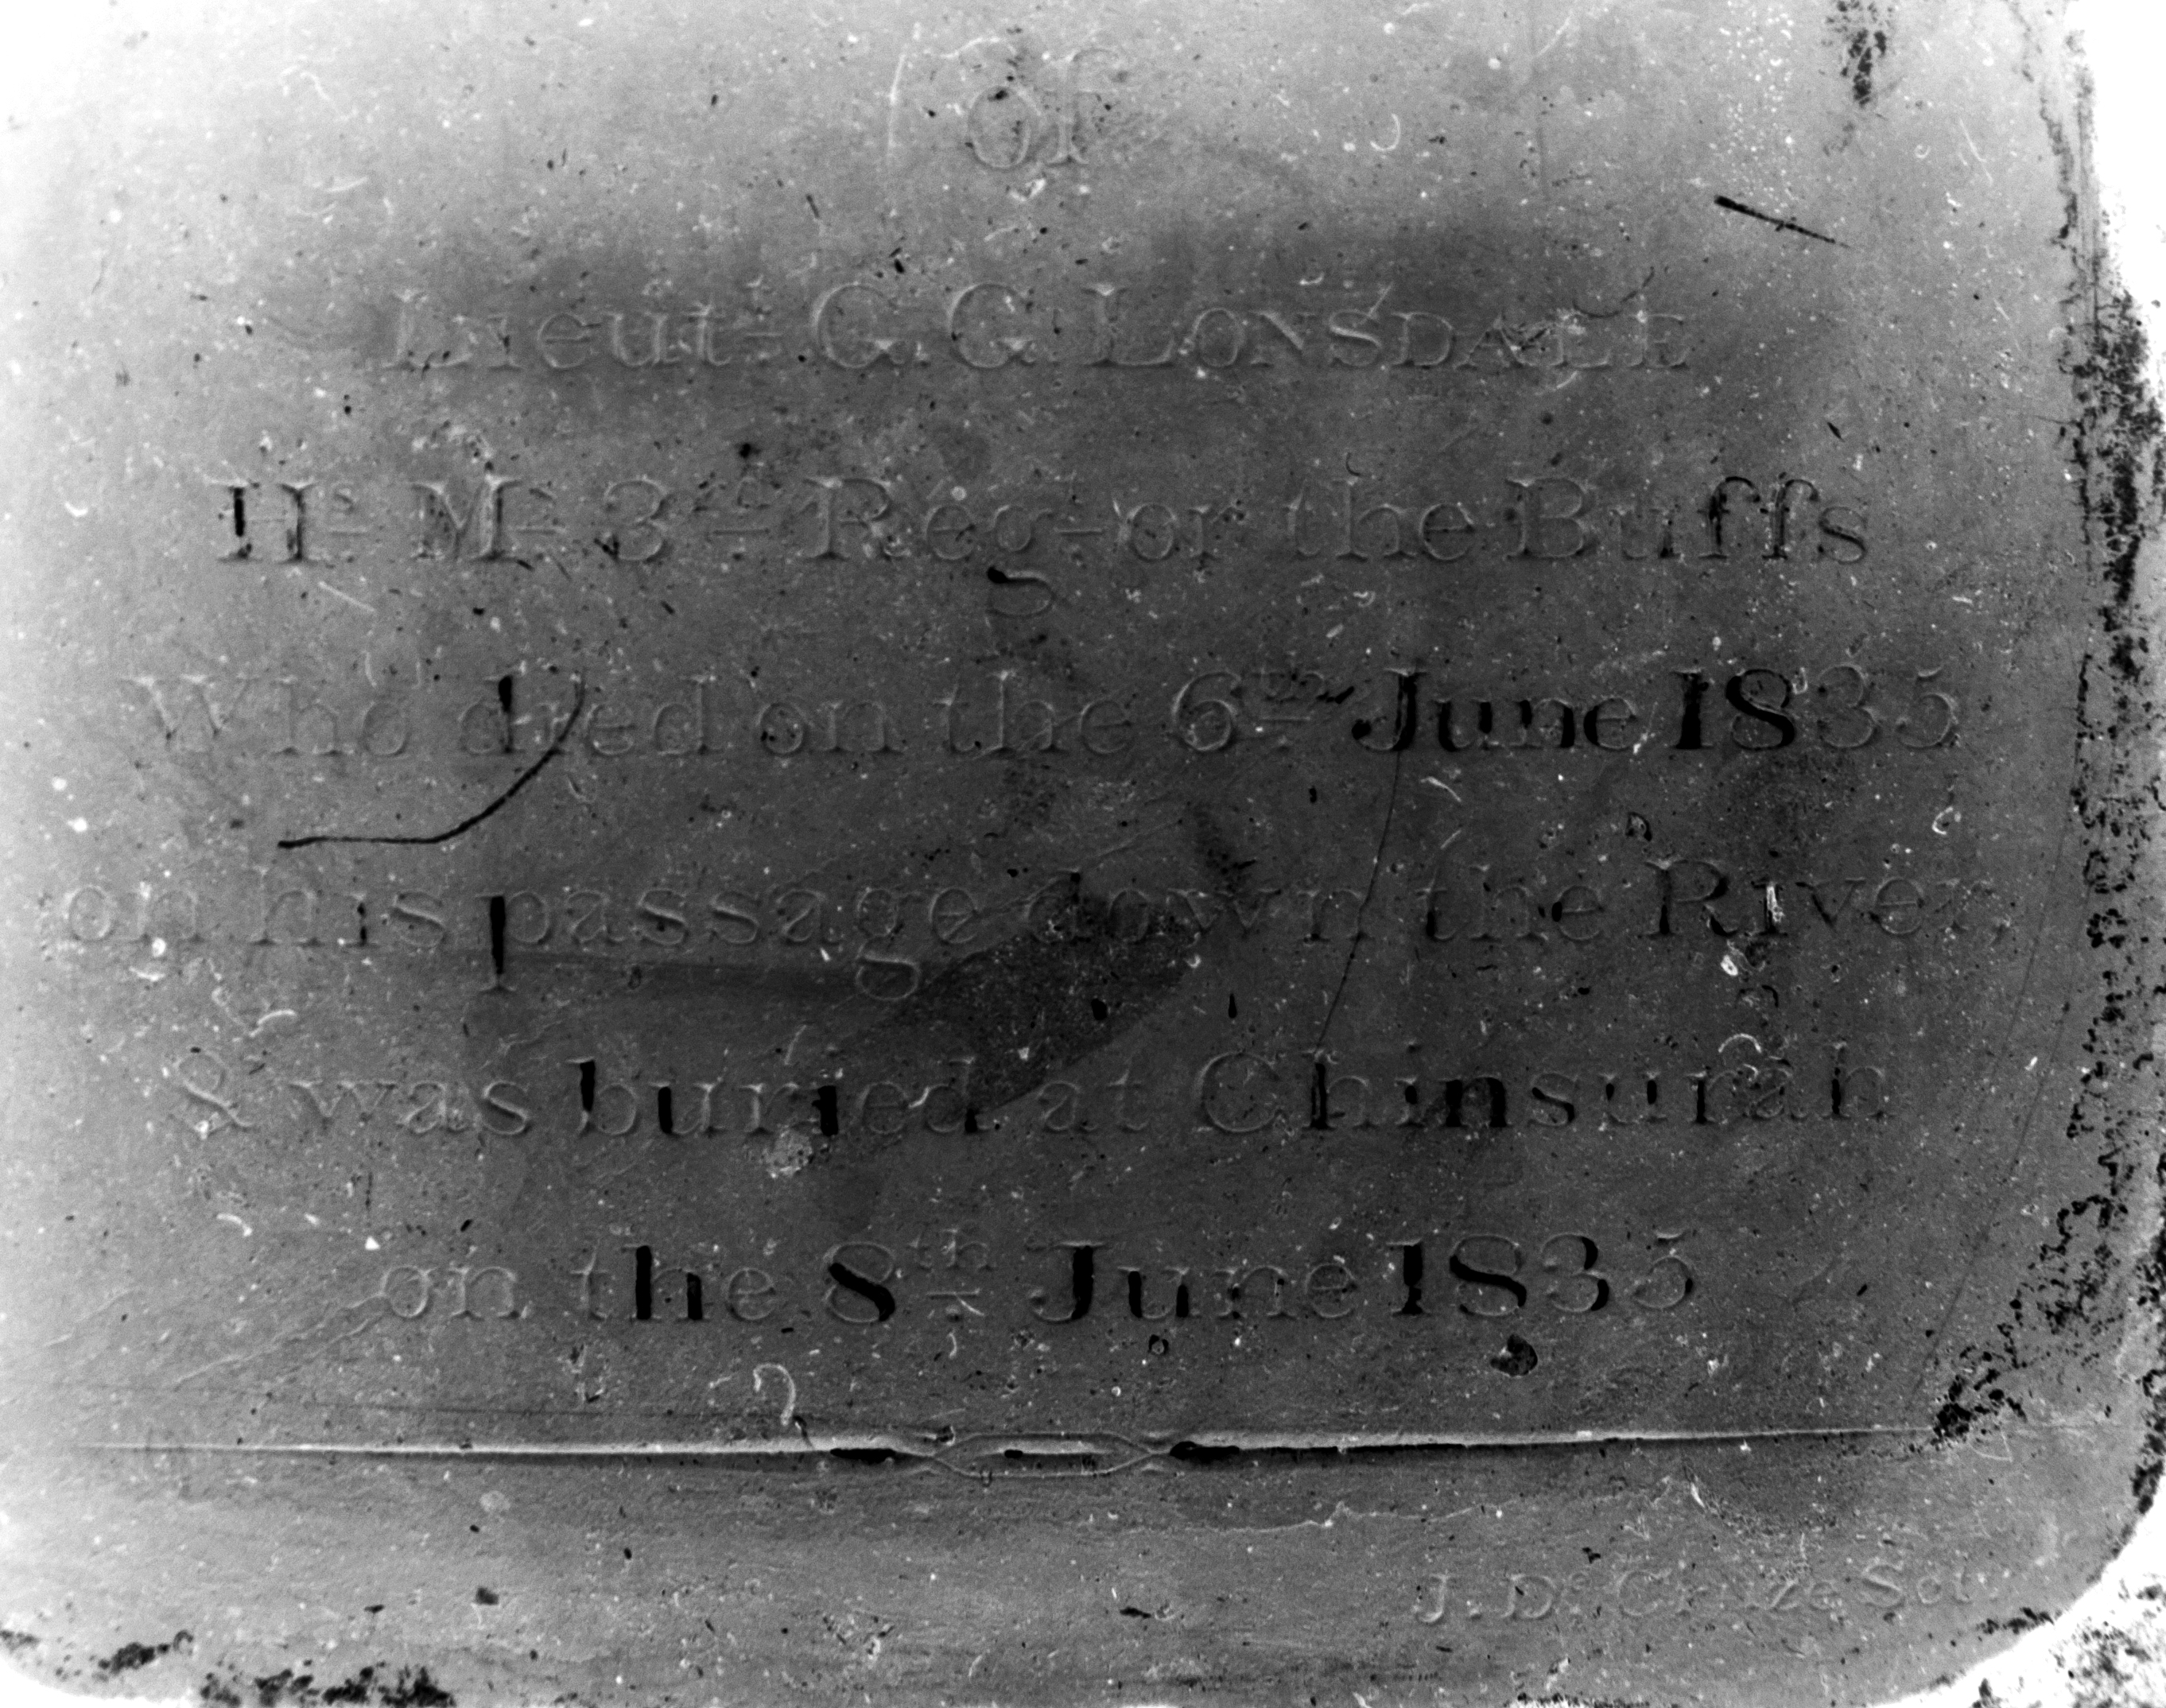 Of
Lieut. G. G. LONSDALE
Hs. Ms. 3rd Reg. or the Buffs
Who died on the 6th June 1835
on his passage down the River,
& was buried at Chinsurah
on the 8th June 1835
J. De Cruze Scl